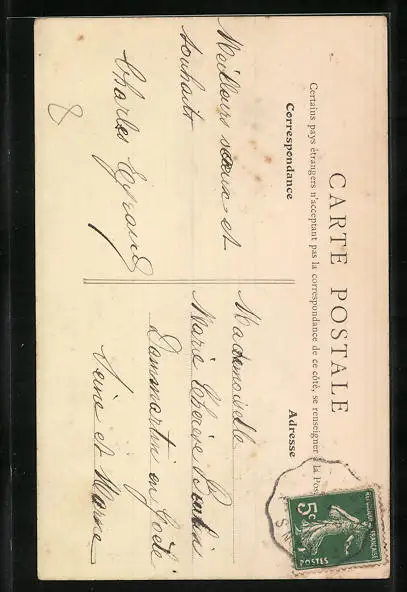 CARTE POSTALE
Certains pays étrangers n'acceptant pas la correspondance de ce côté, se renseigner à la Pos
Correspondance
Meilleurs vœux et
souhaits
Charles
8
Adresse
Mademoiselle
Marie Thérèse
Dammartin en Goële
Seine et Marne
5c
POSTES
FRANÇAISE